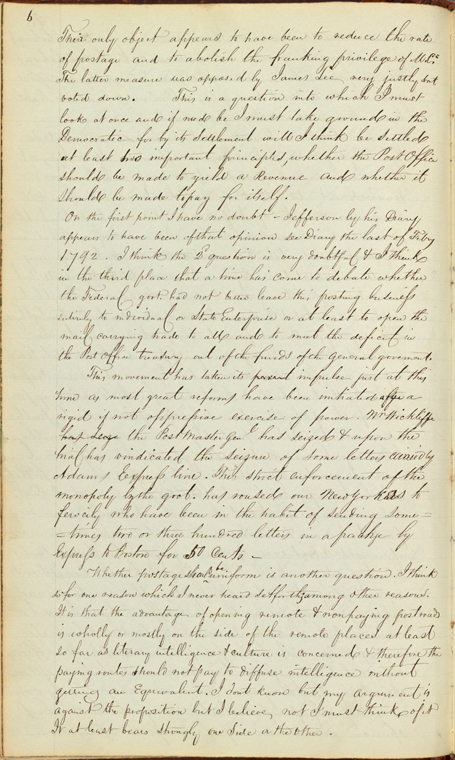 6
Their only object appears to have been to reduce the rate
of postage and to abolish the franking privilege of M.Cs.
The latter measure was opposed by James Lee very justly but
voted down. This is a question into which I must
look at once and if need be I must take ground in the
Democratic for by its settlement will I think be settled
at least two important principles, whether the Post Office
should be made to yield a Revenue and whether it
should be made to pay for itself.
On the first point I have no doubt - Jefferson by his Diary
appears to have been of that opinion see Diary the last of Feby
1792. I think the 2d question is very doubtful & I think
in the third place that a time has come to debate whether
the Federal govt. had not been leave this posting business
entirely to individual or State Enterprise or at least to open the
mail carrying trade to all and to meet the deficit in
the Post Office treasury out of the funds of the General government.
This movement has taken its impulse just at this
time as most great reforms have been initiated after a
rigid if not oppressive exercise of power. Mr Wickliffe
the Post Master Genl has seized & upon the
trial has vindicated the seizure of some letters carried by
Adams' Express line. This strict enforcement of the
monopoly by the govt. has roused our New Yorkers to
ferocity who have been in the habit of sending some=
=times two or three hundred letters in a package by
Express to Boston for 50 Cents -
Whether postage should be uniform is another question. I think
so for one reason which I never heard set forth among other reasons.
It is that the advantage of opening remote & nonpaying post roads
is wholly or mostly on the side of the remote places at least
so far as literary intelligence & culture is concerned & therefore the
paying routes should not pay to diffuse intelligence without
getting an Equivalent. I dont know but my argument is
against the proposition but I believe not I must think of it
It at least bears strongly one side or the other.